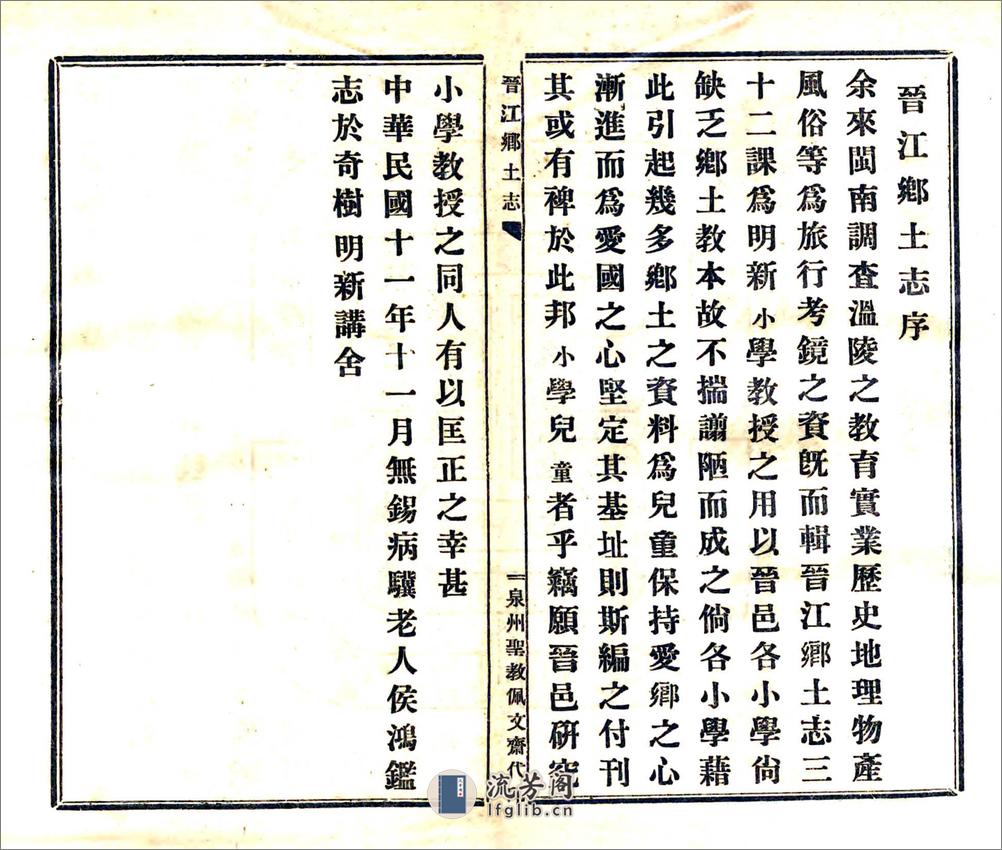 晉江鄕土志序
余來閩南調查溫陵之教育實業歷史地理物產
風俗等爲旅行考鏡之資旣而輯晉江鄕土志三
十二課爲明新小學教授之用以晉邑各小學尙
缺乏鄕土教本故不揣譾陋而成之倘各小學藉
此引起幾多鄕土之資料爲兒童保持愛鄕之心
漸進而爲愛國之心堅定其基址則斯編之付刊
其或有裨於此邦小學兒童者乎竊願晉邑硏究
晉江鄕土志
一
泉州聖教佩文齋代
小學教授之同人有以匡正之幸甚
中華民國十一年十一月無錫病驥老人侯鴻鑑
志於奇樹明新講舍
流芳阁
lfglib.cn